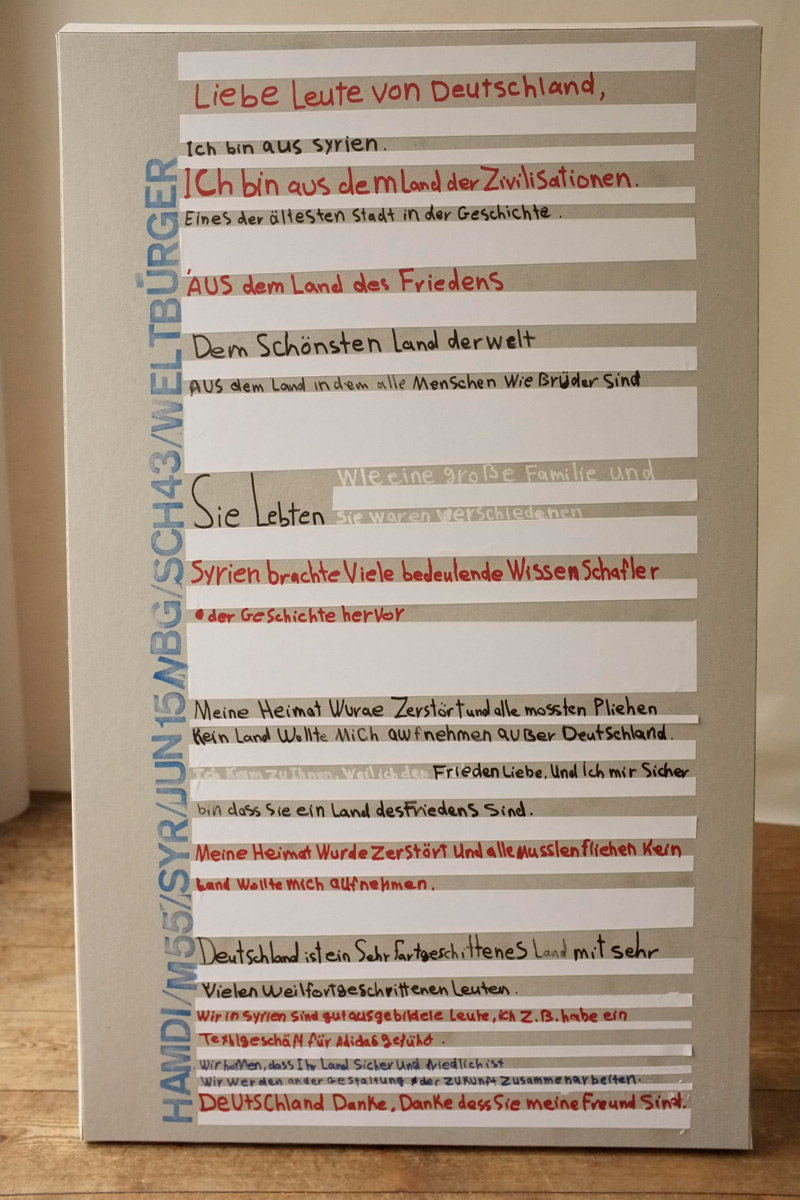 Liebe Leute von Deutschland,
Ich bin aus Syrien.
Ich bin aus dem Land der Zivilisationen.
Eines der ältesten Stadt in der Geschichte.
Aus dem Land des Friedens
Dem Schönsten Land der welt
Aus dem Land in dem alle Menschen Wie Brüder Sind
Sie Lebten Wie eine große Familie und
sie waren verschiedenen
Syrien brachte Viele bedeulende WissenSchafler
der Geschichte hervor
Meine Heimat Wurae Zerstört und alle mossten Pliehen
Kein Land Wollte Mich aufnehmen außer Deutschland.
Ich Kam zu Ihnen, Weil ich den Frieden Liebe, Und Ich mir Sicher
bin dass Sie ein Land desFriedens Sind.
Meine Heimat Wurde Zerstört Und alle Musslen fliehen Kein
Land Wollte mich aufnehmen.
Deutschland ist ein Sehr fartgeschittenes Land mit sehr
Vielen Weilfortgeschrittenen Leuten.
Wir in Syrien Sind gut ausgebildele Leute, ich Z.B. habe ein
für Adidas
Wir hoffen, dass Ihr Land Sicher Und friedlich ist
Wir Werden an der Gestaltung der Zukunft Zusammenarbeiten.
Deutschland Danke, Danke dass Sie meine Freund Sind.
HAMDI/M55/SYR/JUN15/NBG/SCH43/WELTBÜRGER